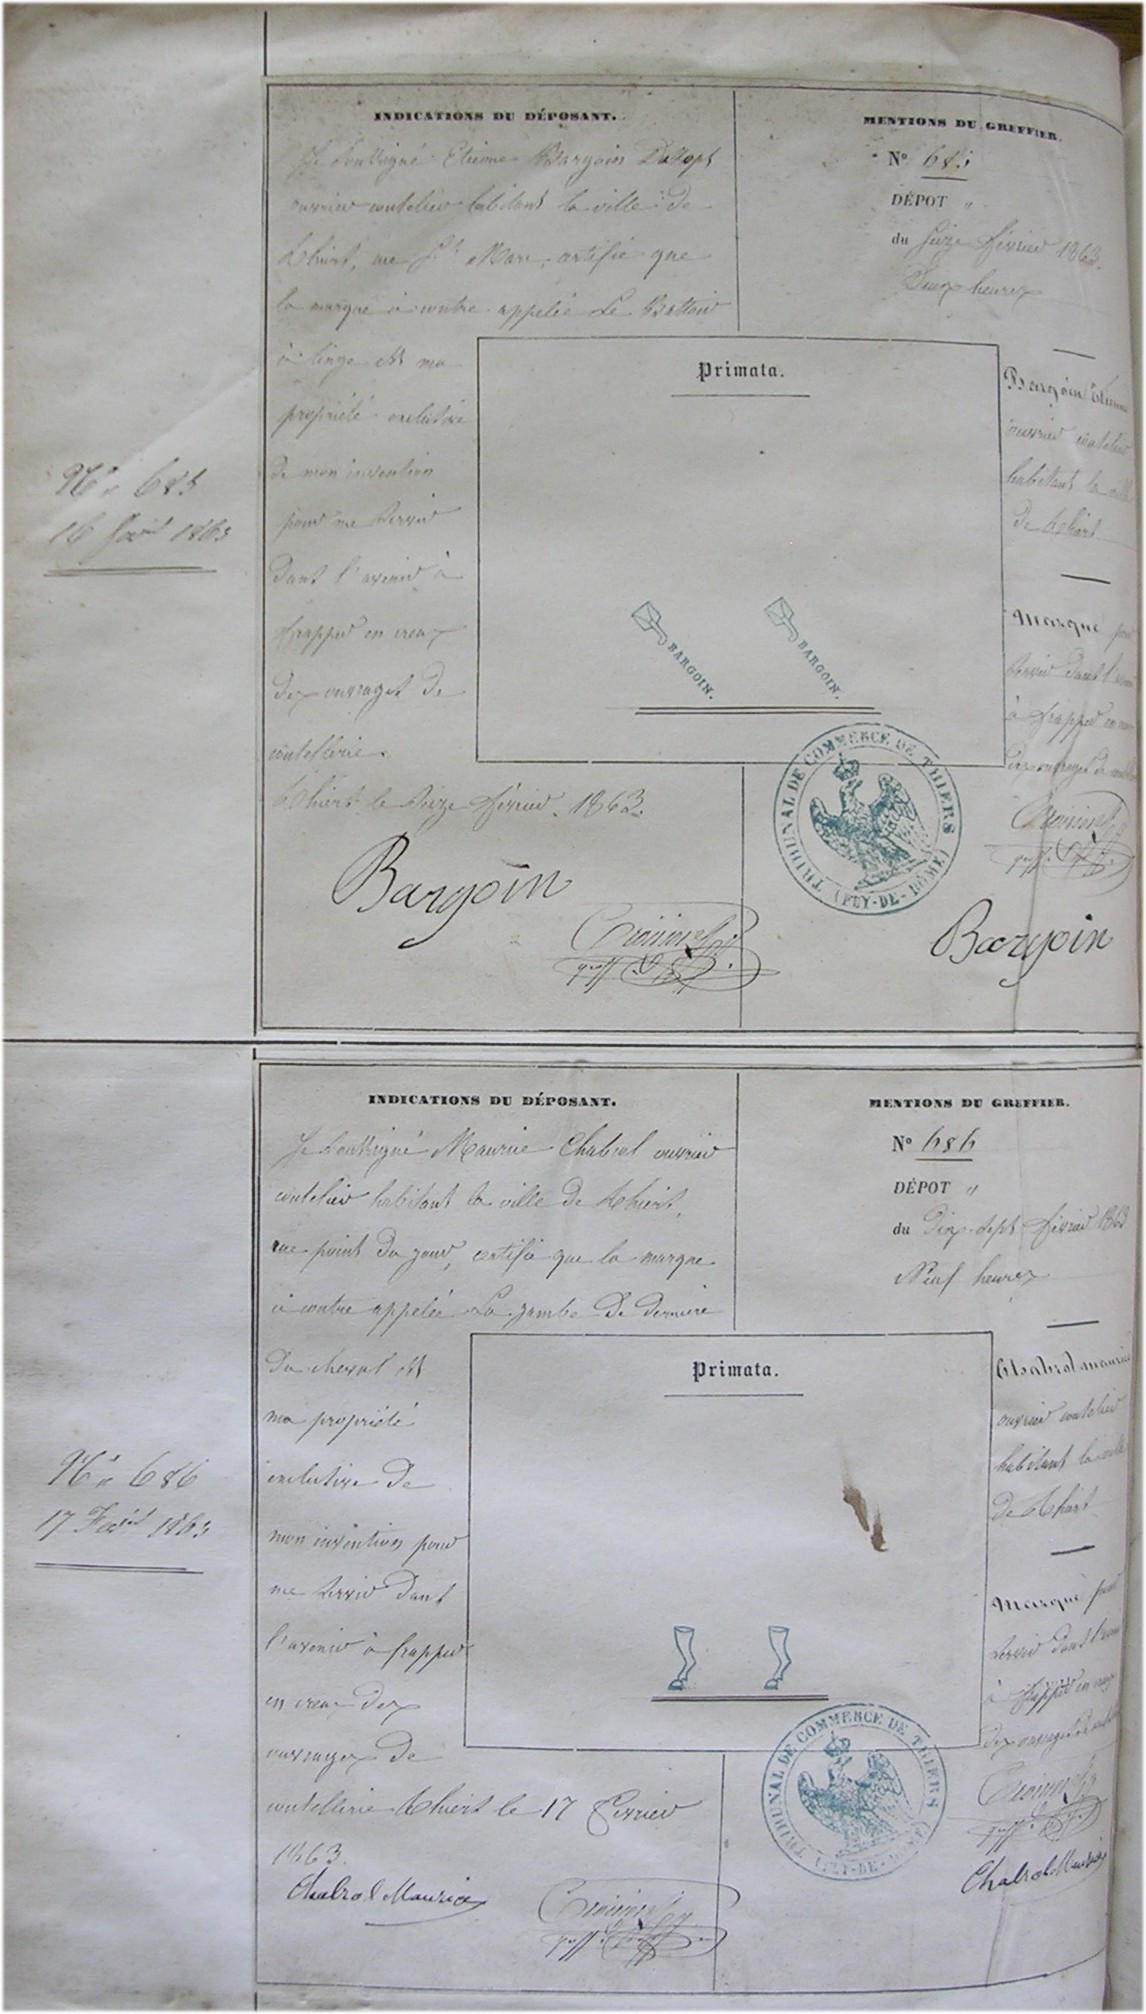 INDICATIONS DU DÉPOSANT.
Je soussigné Etienne Bargoin
ouvrier coutelier habitant la ville de
Thiers, rue St Marc, certifie que
la marque ci contre appelée Le Battoir
à linge est ma
propriété exclusive
de mon invention
pour me servir
dans l'avenir à
frapper en creux
des ouvrages de
coutellerie.
Thiers le seize février 1863.
Bargoin
greff.
MENTIONS DU GREFFIER.
N° 685
DÉPOT "
du seize février 1863.
Deux heures
Bargoin Etienne
ouvrier coutelier
habitant la ville
de Thiers
Marque pour
servir dans l'avenir
à frapper en creux
des ouvrages de
greff.
Bargoin
Primata.
BARGOIN.
BARGOIN.
TRIBUNAL DE COMMERCE DE THIERS
(PUY-DE-DÔME)
N° 685
16 févr 1863
INDICATIONS DU DÉPOSANT.
Je soussigné Maurice Chabrol ouvrier
coutelier habitant la ville de Thiers,
rue point du jour, certifie que la marque
ci contre appelée La jambe de derrière
du cheval est
ma propriété
exclusive de
mon invention pour
me servir dans
l'avenir à frapper
en creux des
ouvrages de
coutellerie Thiers le 17 février
1863.
Chabrol Maurice
greff.
MENTIONS DU GREFFIER.
N° 686
DÉPOT "
du Dix-sept février 1863
Neuf heures
Chabrol maurice
ouvrier coutelier
habitant la ville
de Thiers
Marque pour
servir dans l'avenir
à frapper en creux
des ouvrages de
greff.
Chabrol Maurice
Primata.
TRIBUNAL DE COMMERCE DE THIERS
(PUY-DE-DÔME)
N° 686
17 Févr 1863